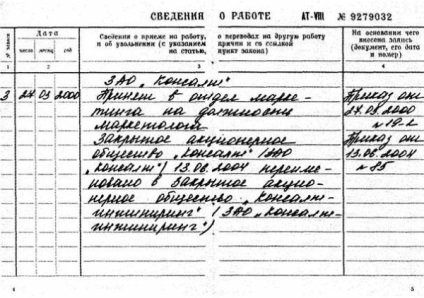 СВЕДЕНИЯ О РАБОТЕ АТ-VIII № 9279032
№ записи
Дата
число месяц год
Сведения о приеме на работу, о переводах на другую работу
и об увольнении (с указанием причин и со ссылкой
на статью, пункт закона)
На основании чего
внесена запись
(документ, его дата
и номер)
1 2 3 4
ЗАО „Консалт"
3 24 03 2000 Принят в отдел марке-
тинга на должность
маркетолога
Приказ от
24.03.2000
Закрытое акционерное
общество „Консалт" (ЗАО
„Консалт") 13.06.2004 переиме-
новано в Закрытое акцио-
нерное общество „Консалт-
инжиниринг" (ЗАО „Консалт-
инжиниринг")
Приказ от
13.06.2004
№85
4 5